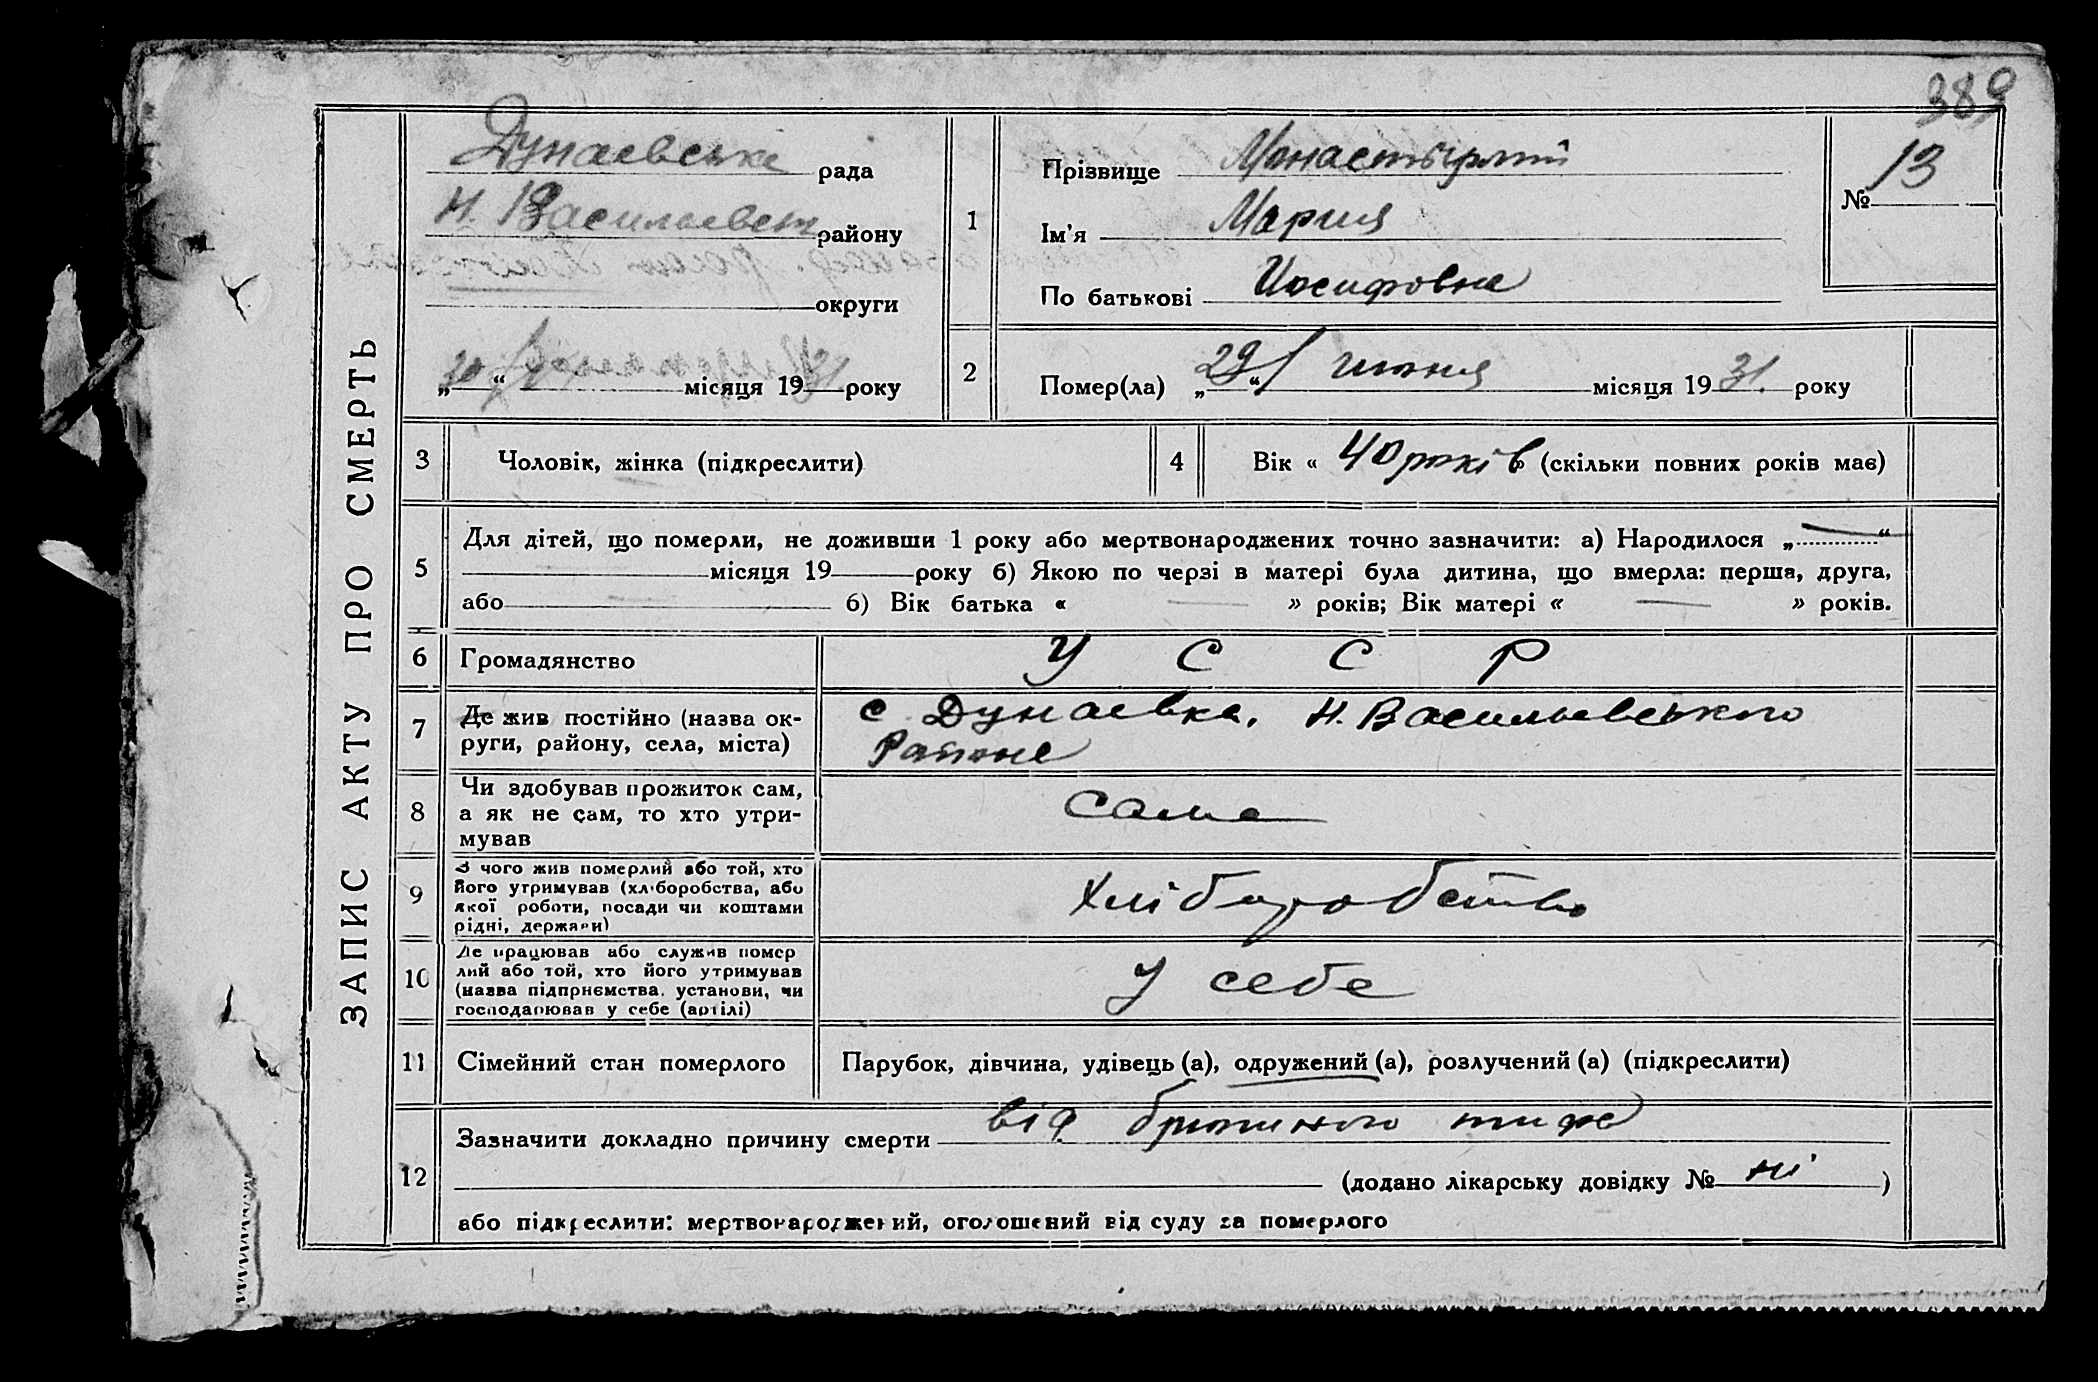 389
ЗАПИС АКТУ ПРО СМЕРТЬ
Дунаевська рада
Н. Васильевськ району
округи
„30“ місяця 1931 року
1
Прізвище
Имя Мария
По батькові Иосифовна
№ 13
2
Помер(ла) „29“ июня місяця 1931. року
3 Чоловік, жінка (підкреслити)
4 Вік « 40 років » (скільки повних років має)
5
Для дітей, що померли, не доживши 1 року або мертвонароджених точно зазначити: а) Народилося „—“
місяця 19 року б) Якою по черзі в матері була дитина, що вмерла: перша, друга,
або б) Вік батька « — » років; Вік матері « — » років.
6 Громадянство У С С Р
7
Де жив постійно (назва ок-
руги, району, села, міста)
с. Дунаевка, Н. Васильевського
Района
8
Чи здобував прожиток сам,
а як не сам, то хто утри-
мував
сама
9
З чого жив померлий або той, хто
його утримував (хліборобства, або
якої роботи, посади чи коштами
рідні, держави)
Хліборобство
10
Де працював або служив помер
лий або той, хто його утримував
(назва підпрнємства, установи, чи
господарював у себе (артілі)
У себе
11 Сімейний стан померлого Парубок, дівчина, удівець (а), одружений (а), розлучений (а) (підкреслити)
12
Зазначити докладно причину смерти від брюшного тифа
(додано лікарську довідку № ні )
або підкреслити: мертвонароджений, оголошений від суду за померлого